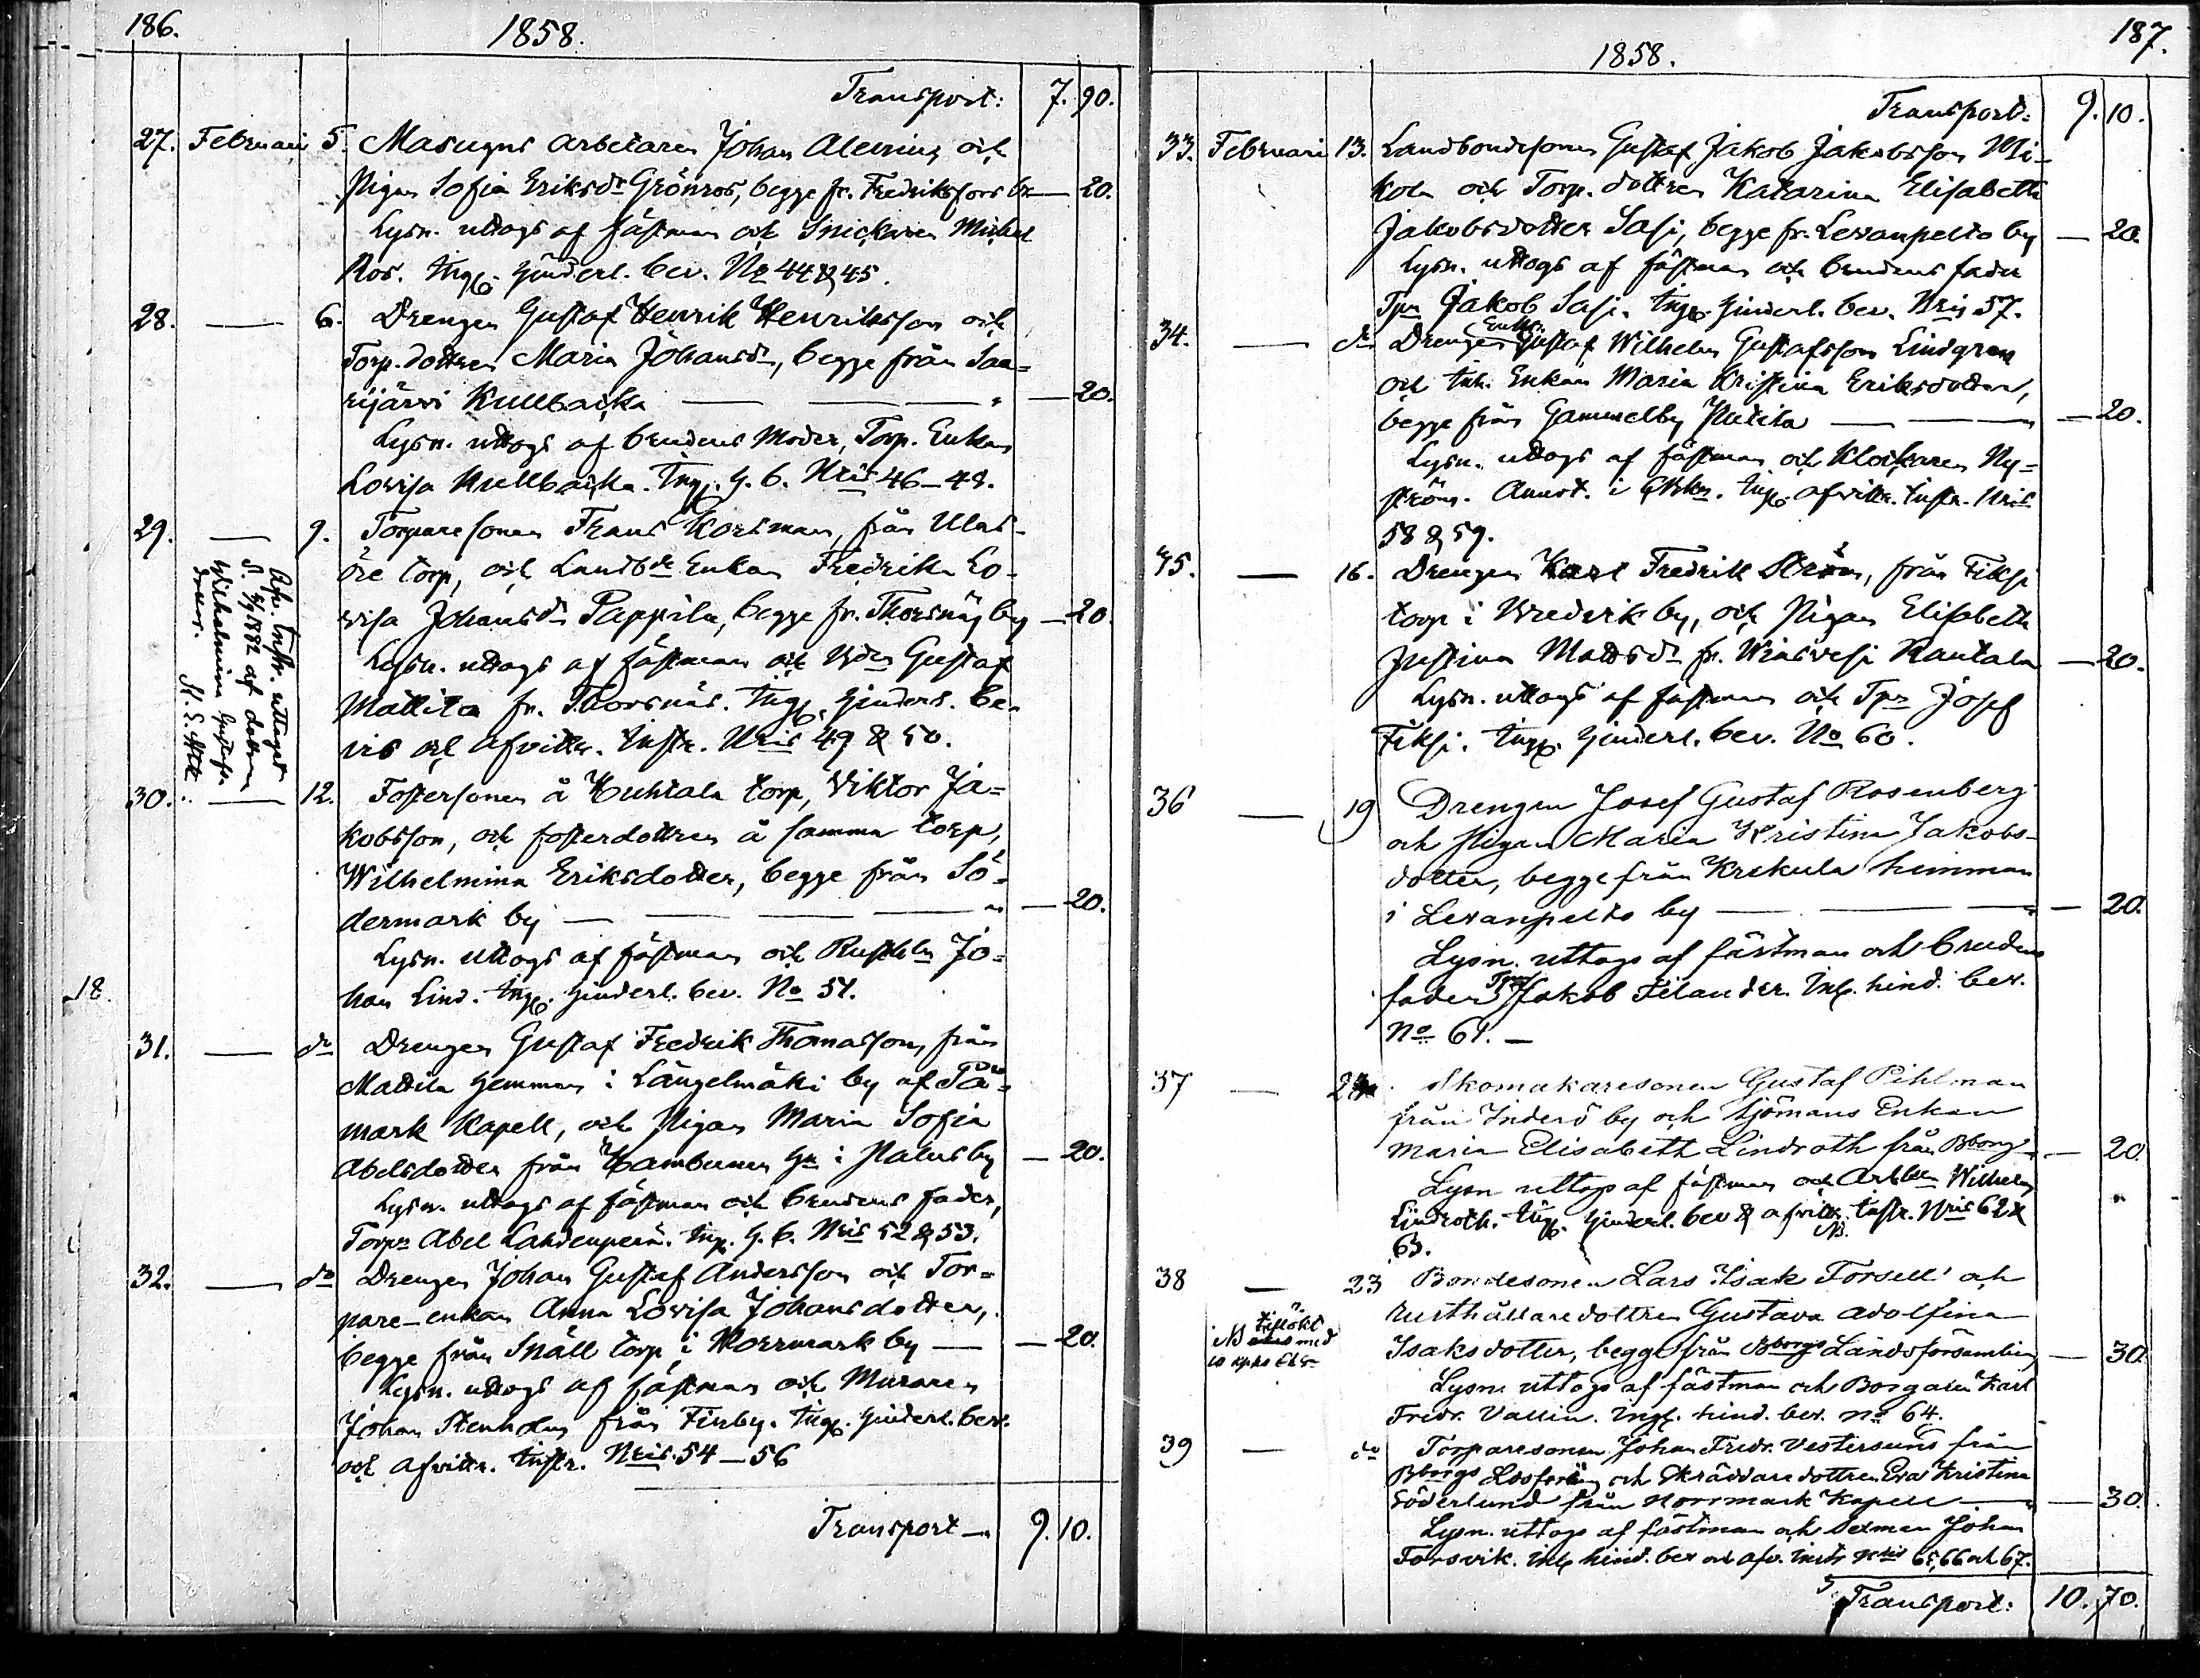 186.
1858.
Transport: 7. 90.
27. Februari 5. Masugns arbetaren Johan Alenius och
Pigan Sofia Eriksdr Grönros, begge fr. Fredriksfors br — 20.
Lysn. uttogs af fästman och Snickaren Michel
Ros. Ingf. hinderl. bev. No 44 & 45.
28. — 6. Drengen Gustaf Henrik Henriksson och
Torp. dottren Maria Johansdr, begge från Saa=
rijärvi Kullbacka — — — — 20.
Lysn. uttogs af brudens moder, Torp. Enkan
Lovisa Kullbacka. Ingf. h. b. Nris 46-48.
29. — 9. Torparesonen Frans Korsman, från Ulas-
öre torp, och Landbde Enkan Fredrika Lo-
visa Johansdr Pappila, begge fr. Thorsnäs by — 20.
Lysn. uttogs af fästman och Gustaf
Mattila fr. Thorsnäs. Ingf. hinderl. be-
vis och afvittr. instr. Nris 49 & 50.
Afv. instr. uttogs
d. 5/9 1882 af dottren
Wilhelmina Gustafs
dotter.
30. — 12. Fostersonen å Huhtala torp, Viktor Ja=
kobsson, och fosterdottren å samma torp,
Wilhelmina Eriksdotter, begge från Sö=
dermark by — — — — 20.
Lysn. uttogs af fästman och Rusthln Jo=
han Lind. Ingf. hinderl. bev. No 51.
18.
31. — do Drengen Gustaf Fredrik Thomasson, från
Mattila hemman i Längelmäki by af På=
mark Kapell, och Pigan Maria Sofia
Abelsdotter från Hambunen hn i Palus by — 20.
Lysn. uttogs af fästman och brudens fader,
Torpn Abel Lahdenperä. Ingf. h. b. Nris 52 & 53.
32. — do Drengen Johan Gustaf Andersson och Tor=
pare-enkan Anna Lovisa Johansdotter,
begge från Snäll torp i Norrmark by — — 20.
Lysn. uttogs af fästman och Muraren
Johan Stenholm från Finby. Ingf. hinderl. bev.
och afvittr. instr. Nris. 54-56
Transport — 9. 10.
187.
1858.
Transport: 9. 10.
33. Februari 13. Landbondesonen Gustaf Jakob Jakobsson Mi-
kola och Torp. dottren Katarina Elisabeth
Jakobsdotter Sasi, begge fr. Levanpelto by — 20.
Lysn. uttogs af fästman och brudens fader
Tpn Jakob Sasi. Ingf. hinderl. bev. Nris 57.
34. — do Drengen Enkl. Gustaf Wilhelm Gustafsson Lindgren
och Inh. Enkan Maria Kristina Eriksdotter,
begge från Gammelby Pietila — — — 20.
Lysn. uttogs af fästman och Klockaren Ny=
ström. Annot. i Ingf. afvittr. instr. Nris
58 & 59.
35. — 16. Drengen Karl Fredrik Ström, från Fiksi
torp i Vredvik by, och Pigan Elisabeth
Justina Mattsdr fr. Wiasvesi Rantala — 20.
Lysn. uttogs af fästman och Tpn Josef
Fiksi. Ingf. hinderl. bev. No 60.
36 — 19 Drengen Josef Gustaf Rosenberg
och Pigan Maria Kristina Jakobs-
dotter, begge från Krekula himman
i Levanpelto by — — — — 20.
Lysn. uttogs af fästman och brudens
fader Tpn Jakob Filander. Inl. hind. bev.
No 61. —
37 — Skomakaresonen Gustaf Pihlman
från Inderö by och Sjömans Enkan
Maria Elisabeth Lindroth från Bborg — 20
Lysn. uttogs af fästman och Wilhelm
Lindroth. Ingf. hinderl. bev & afvittr. instr. Nris 62 &
63. NB.
38 — 23 Bondesonen Lars Isak Forsell och
Rusthållaredottren Gustava Adolfina
Isaksdotter, begge från Bborgs Landsförsamling — 30.
NB med
Lysn. uttogs af fästman och Borgaren Karl
Fredr. Vallin. Ingf. hind. bev. no 64.
39 — do Torparesonen Johan Fredr. Vestersund från
Bborgs och Skräddaredottren Eva Kristina
Söderlund från Norrmark Kapell — 30.
Lysn. uttogs af fästman och Sexman Johan
Forsvik. Inl. hind. bev och afv. instr. Nris 65, 66 och 67.
Transport: 10. 70.